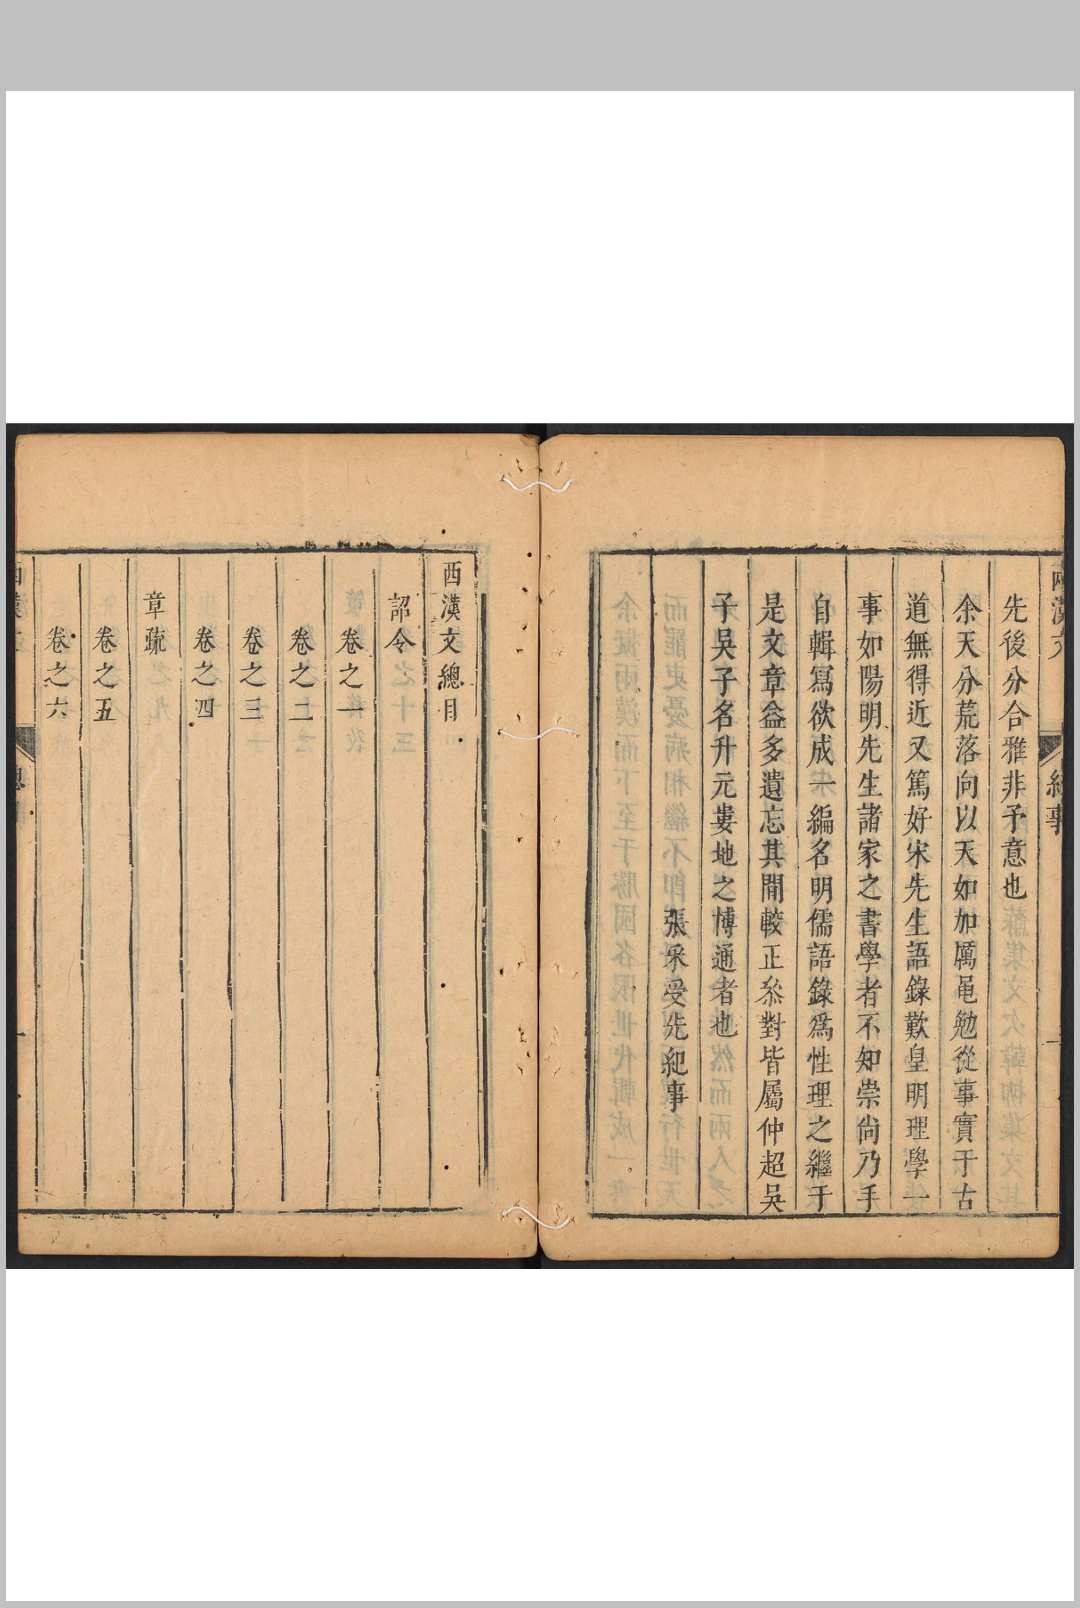 先後分合雅非予意也
余天分荒落向以天如加厲黽勉從事實于古
道無得近又篤好宋先生語錄歎皇明理學一
事如陽明先生諸家之書學者不知崇尙乃手
自輯寫欲成一編名明儒語錄爲性理之繼于
是文章益多遺忘其閒較正叅對皆屬仲超吳
子吳子名升元婁地之博通者也
張采受先紀事
西漢文總目
詔令
卷之一
卷之二
卷之三
卷之四
章疏
卷之五
卷之六